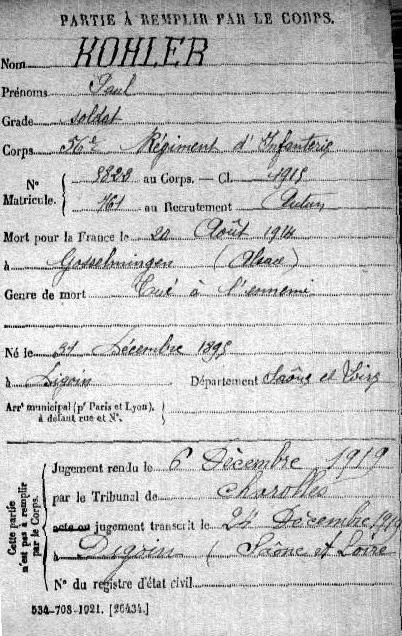 PARTIE À REMPLIR PAR LE CORPS.
Nom KOHLER
Prénoms Paul
Grade soldat
Corps 56e Régiment d'Infanterie
N° Matricule. { 8828 au Corps. — Cl. 1915
1161 au Recrutement Autun
Mort pour la France le 20 Août 1914
à Gosselmingen (Alsace)
Genre de mort Tué à l'ennemi
Né le 31 Décembre 1895
à Digoin Département Saône et Loire
Arrt municipal (pr Paris et Lyon),
à défaut rue et N°.
Cette partie n'est pas à remplir par le Corps.
Jugement rendu le 6 Décembre 1919
par le Tribunal de Charolles
acte ou jugement transcrit le 24 Décembre 1919
à Digoin (Saône et Loire
N° du registre d'état civil
534-708-1921. [26434.]